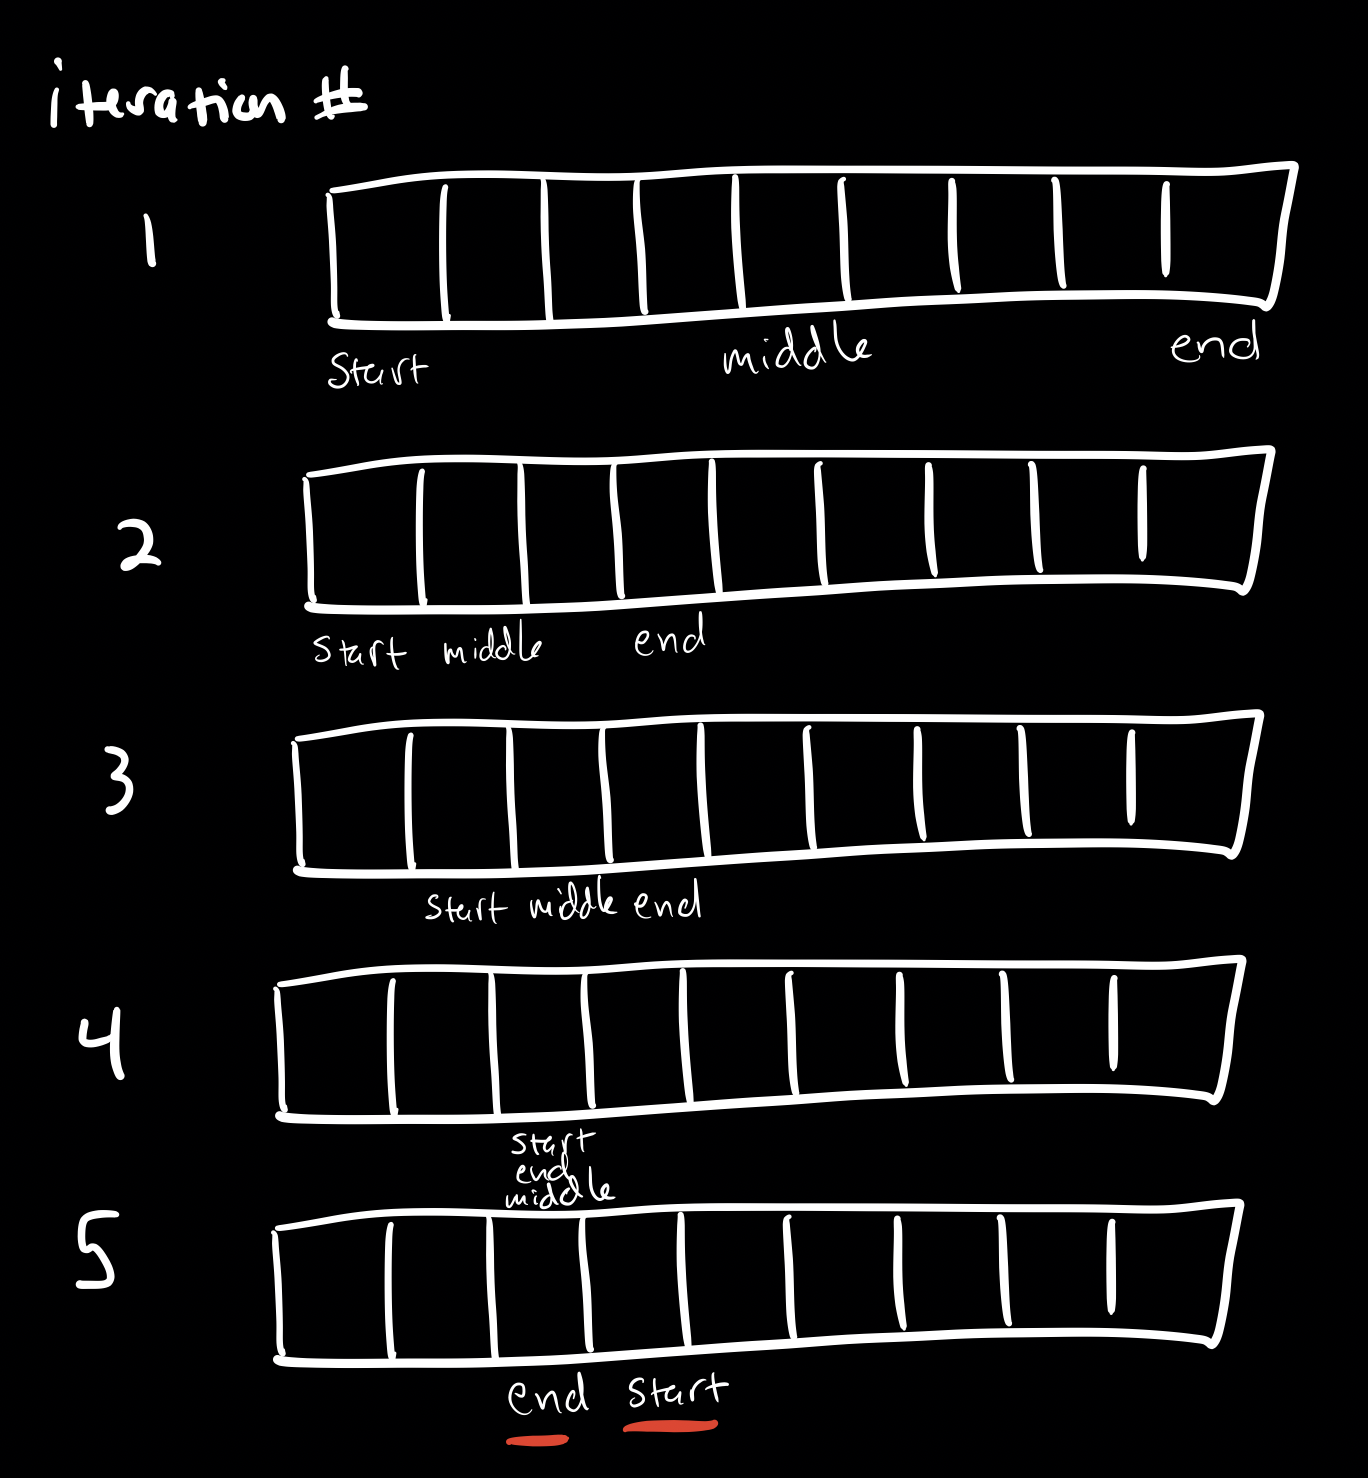 iteration #
1
start middle end
2
start middle end
3
start middle end
4
start
end
middle
5
end start